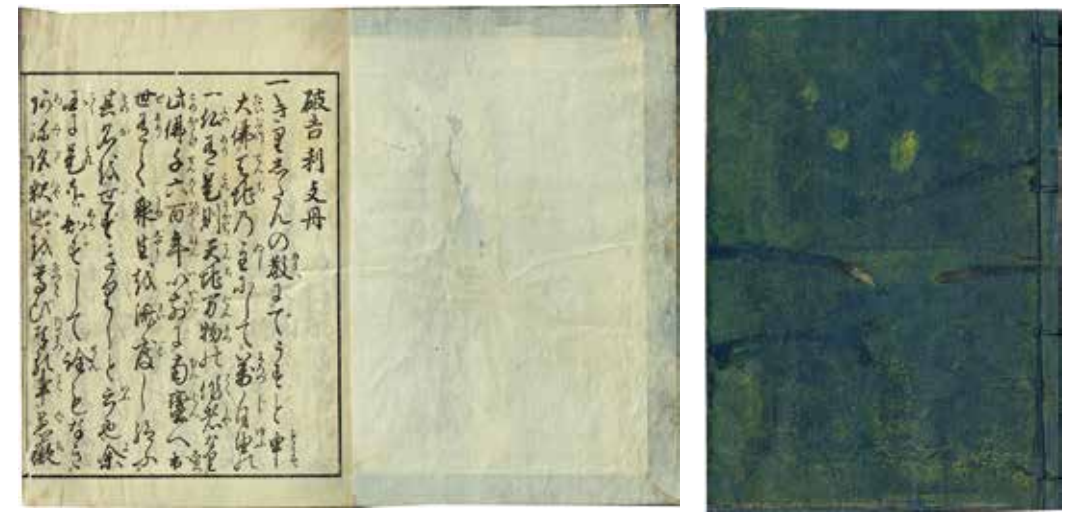 破吉利支丹
一きりしたんの教にでうすと申
大佛天地の主にして萬自由の
一仏有是則天地万物の作者なり
此佛千六百年以前に南蠻へ出
世有て衆生を濟度し給ふ
其名を世須きりしとと云也余
是を知ずして詮もなき
阿弥陀釈迦を尊び奉る事愚癡